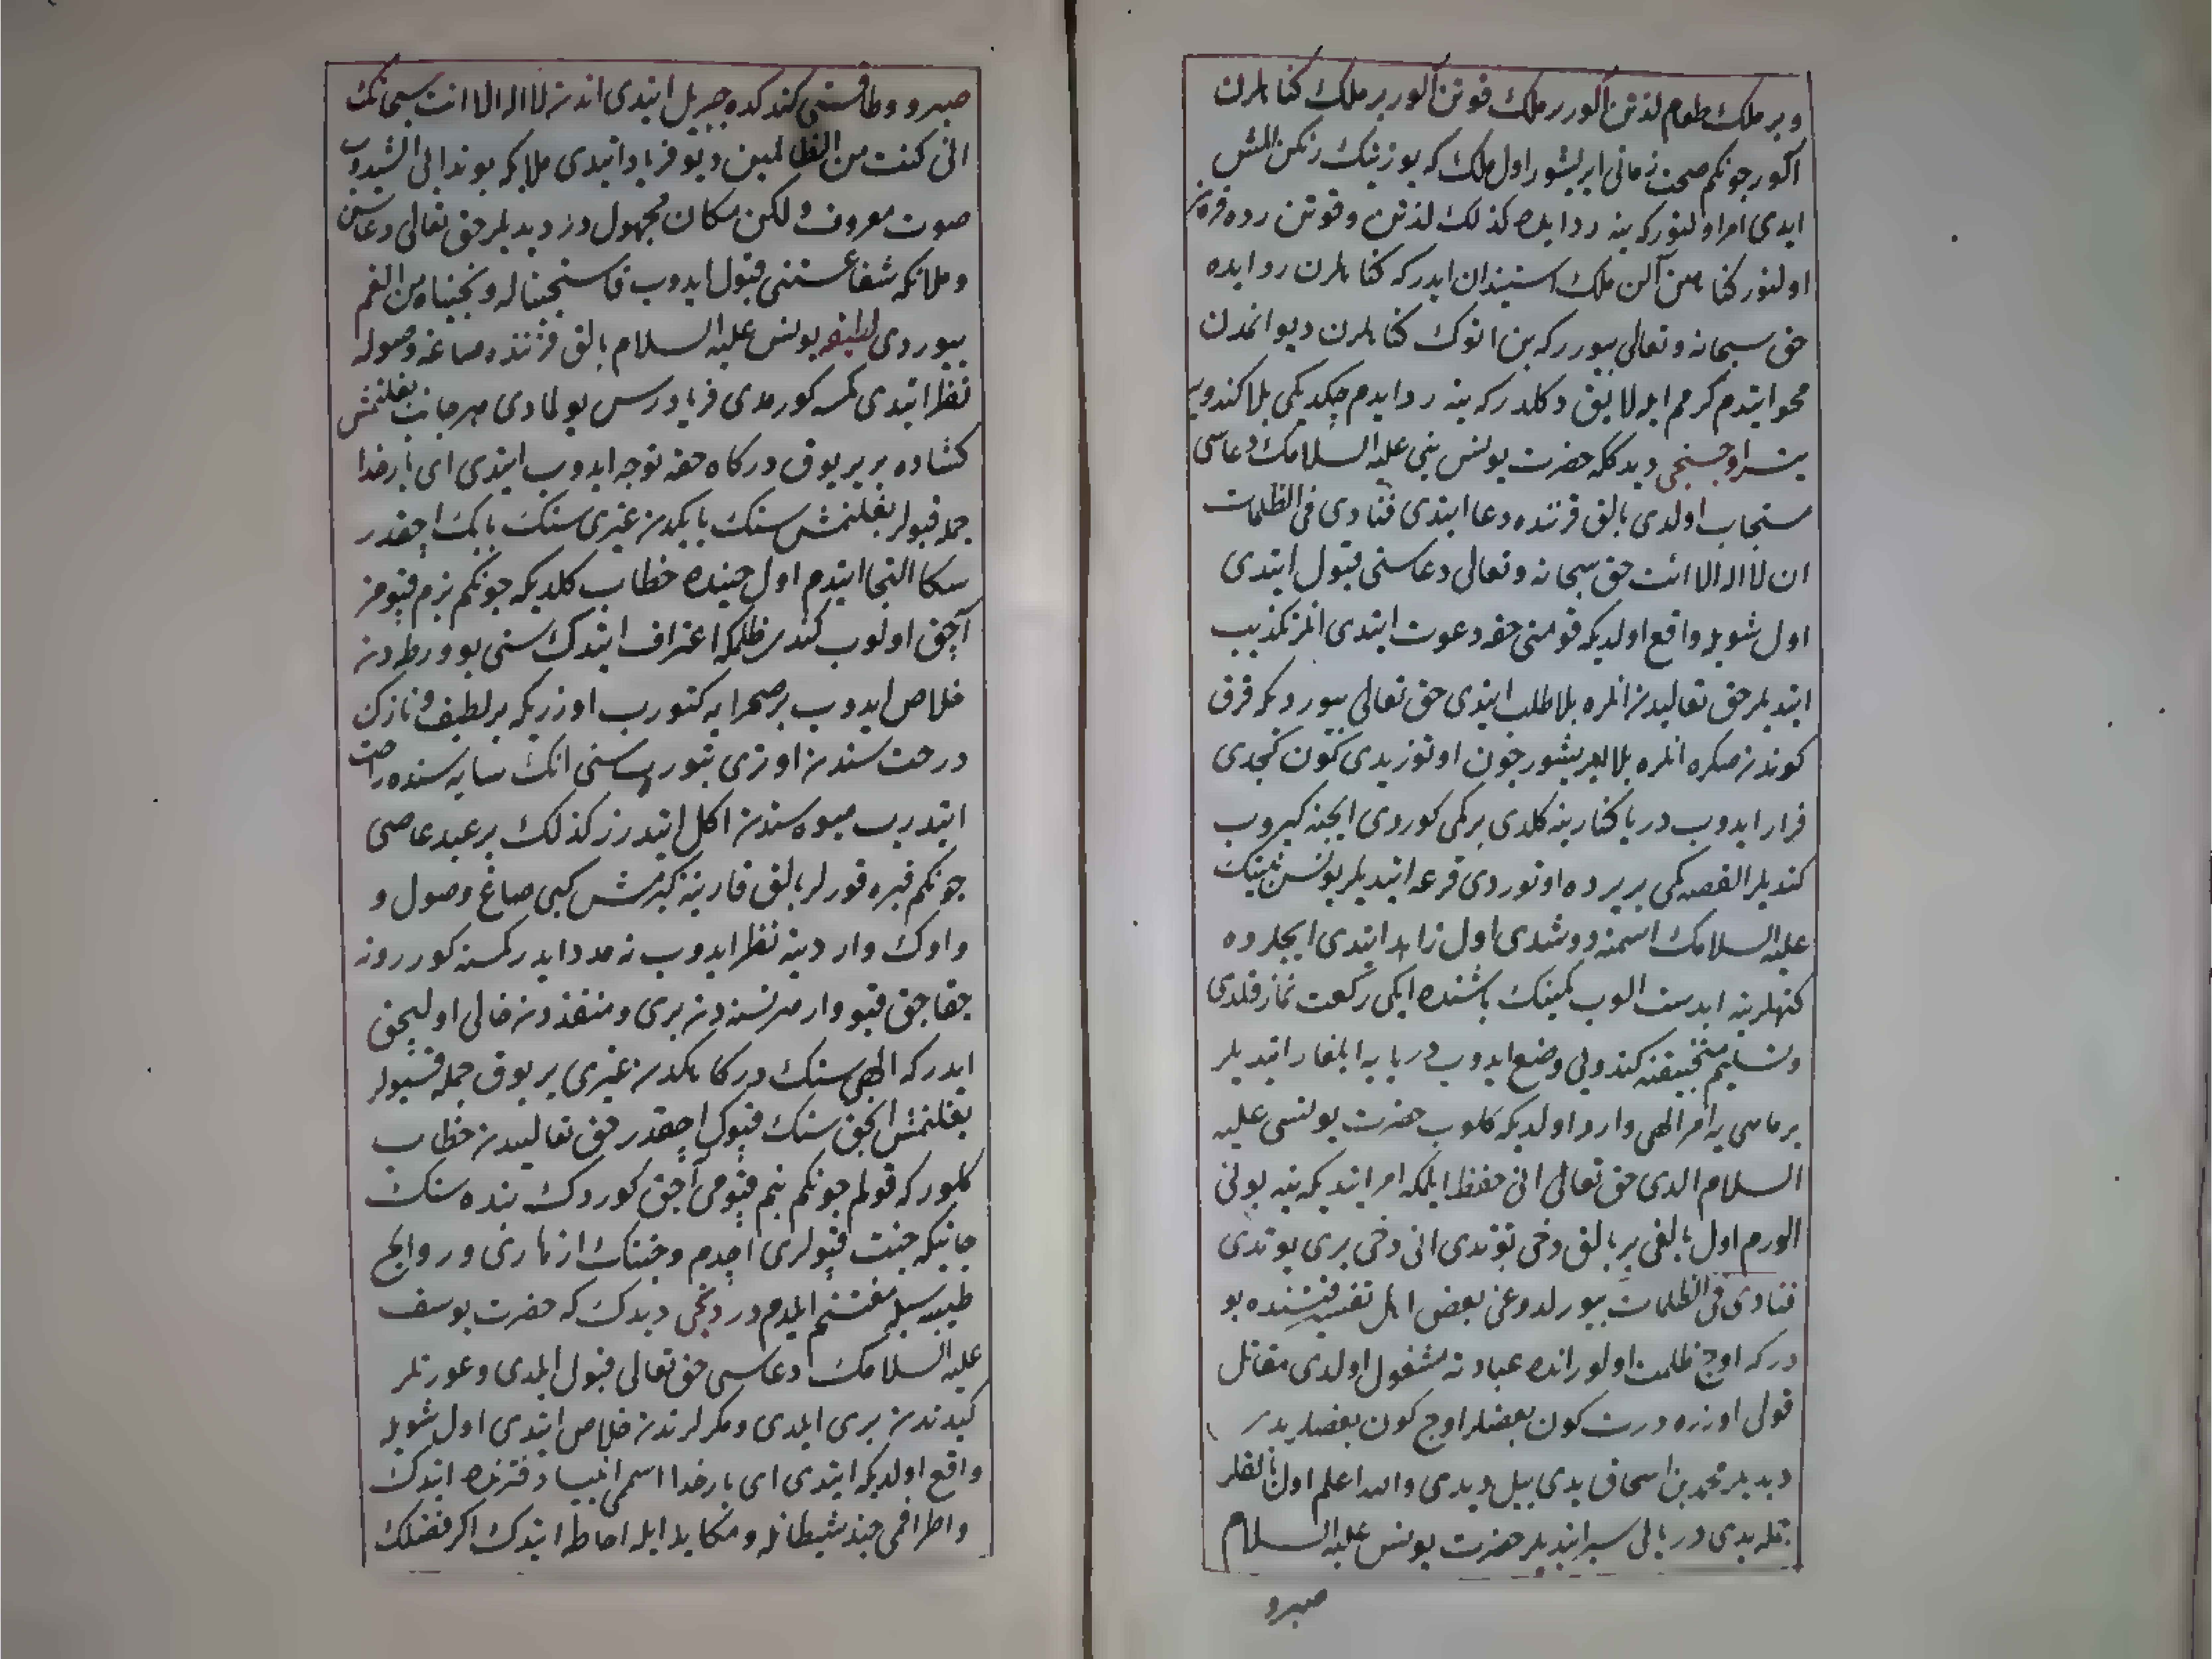 و بر ملك طعام لذتن آلور بر ملك قوتن آلور بر ملك كناهلرن
آلور چونكم صحت زمانى ايريشور اول ملك كه يوزينك رنكن المش
ايدى امر اولنور كه ينه رد ايده كذلك لذتن و قوتن رده
اولنور كناهن آلن ملك استيذان ايدر كه كناهلرن رد ايده
حق سبحانه وتعالى بيورر كه بن انوك كناهلرن ديواندن
محو ايتدم كرمم ايله لايق دكلدر كه ينه رد ايدم چكديكى بلا كندويه
يتر اوچنجى ديدكله حضرت يونس نبى عليه السلامك دعاسى
مستجاب اولدى بالق قرننده دعا ايتدى فنادى فى الظلمات
ان لا اله الا انت حق سبحانه وتعالى دعاسنى قبول ايتدى
اول شويله واقع اولديكه قومنى حقه دعوت ايتدى انلر تكذيب
ايتديلر حق تعاليدن انلره بلا طلب ايتدى حق تعالى بيورديكه قرق
كوندن صكره انلره بلا ايريشور چون اوتوز يدى كون كچدى
فرار ايدوب دريا كنارينه كلدى بر كمى كوردى ايچنه كيروب
كتديلر القصه كمى بر يرده اوتوردى قرعه ايتديلر يونس نبينك
عليه السلامك اسمنه دوشدى اول زاهد ايتدى ايچلرده
كنهلرينه ابدست الوب كمينك باشنده ايكى ركعت نماز قلدى
وتسليم منجنيقنه كندويى وضع ايدوب دريايه ايلغار ايتديلر
بر ماهى يه امر الهى وارد اولديكه كلوب حضرت يونسى عليه
السلام الدى حق تعالى انى حفظ ايلمكه امر ايتديكه ينه بونى
الورم اول بالغى بر بالق دخى يوتدى انى دخى برى يوتدى
فنادى فى الظلمات بيورلدوغى بعض اهل تفسير قتنده بو
در كه اوچ ظلمت اولور انده عبادته مشغول اولدى مقاتل
قولى اوزره درت كون بعضلر اوچ كون بعضلر يدى
ديديلر محمد بن اسحاق يدى ييل ديدى والله اعلم اول بالقلر
جمله يدى دريايى سير ايتديلر حضرت يونس عليه السلام
صبرو
صبرو وطاقتى كتدكده جبريل ايتدى اندن لا اله الا انت سبحانك
انى كنت من الظالمين ديو فرياد ايتدى ملائكه بو ندايى اشيدوب
صوت معروف ولكن مكان مجهول در ديديلر حق تعالى دعاسن
وملائكه شفاعتنى قبول ايدوب فاستجبنا له ونجيناه من الغم
بيوردى لطيفه يونس عليه السلام بالق قرننده صاغه وصوله
نظر ايتدى كمسه كورمدى فريادرس بولمادى هر جانب بغلنمش
كشاده بر ير يوق دركاه حقه توجه ايدوب ايتدى اى بار خدا
جمله قپولر بغلنمش سنك بابكدن غيرى سنك بابك اچقدر
سكا التجا ايتدم اول حينده خطاب كلديكه چونكم بزم قپومز
آچق اولوب كندى ظلمكه اعتراف ايتدك سنى بو ورطه دن
خلاص ايدوب بر صحرايه كتورب اوزريكه بر لطيف و نازك
درخت سندن اوزرى بتورب سنى انك سايه سنده راحت
ايتدرب ميوه سندن اكل ايتدرز كذلك بر عبد عاصى
چونكم قبره قورلر بالق قارينه كيرمش كبى صاغ وصول و
و اوك وار دينه نظر ايدوب نه مدد ايدر كمسنه كورر و نه
چقاجق قپو وار هر نسنه دن برى و منفذدن خالى اوليجق
ايدر كه الهى سنك دركاهكدن غيرى ير يوق جمله قپولر
بغلنمش انجق سنك قپوك اچقدر حق تعاليدن خطاب
كلور كه قولم چونكم بنم قپومى آچق كوردك بنده سنك
جانبكه جنت قپولرى اچدم و جنتك ازهارى و روايح
طيبه سيله مغتنم ايلدم دردنجى ديدك كه حضرت يوسف
عليه السلامك دعاسى حق تعالى قبول ايلدى و عورتلر
كيدندن برى ايلدى و مكرلرندن خلاص ايتدى اول شويله
واقع اولديكه ايتدى اى بار خدا اسمى انبيا دفترنده ايتدك
و اطرافمى جند شيطانله و مكايد ايله احاطه ايتدك اكر فضلك